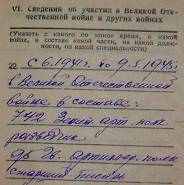 VI. Сведения об участии в Великой Оте-
чественной войне и других войнах
(Укажите с какого по какое время, в какой
войне, в составе какой части, на какой долж-
ности, по какой специальности)
22 с 6.1941г. по 9.5.1945г.
в Великой Отечественной
войне в составе:
арт. полк
разведчик
полк
старший писарь